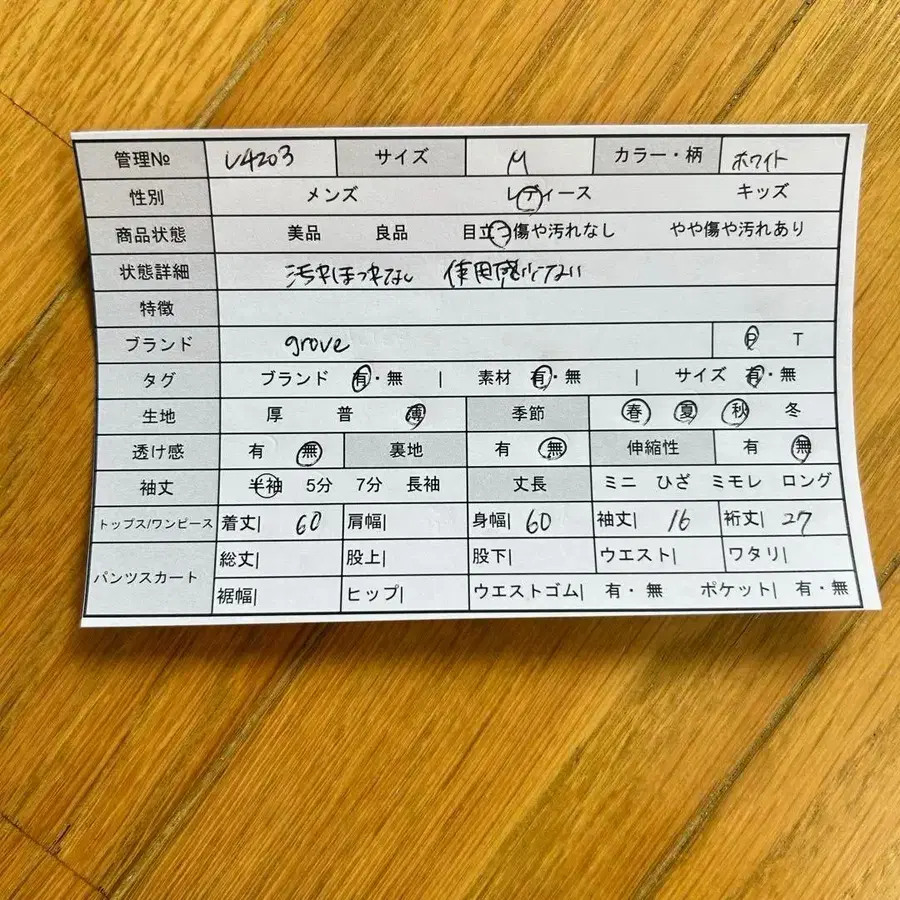 管理№ U4203 サイズ M カラー・柄 ホワイト
性別 メンズ レディース キッズ
商品状態 美品 良品 目立つ傷や汚れなし やや傷や汚れあり
状態詳細 汚れほつれなし 使用感少ない
特徴
ブランド grove P T
タグ ブランド 有・無 | 素材 有・無 | サイズ 有・無
生地 厚 普 薄 季節 春 夏 秋 冬
透け感 有 無 裏地 有 無 伸縮性 有 無
袖丈 半袖 5分 7分 長袖 丈長 ミニ ひざ ミモレ ロング
トップス/ワンピース 着丈| 60 肩幅| 身幅| 60 袖丈| 16 裄丈| 27
パンツスカート 総丈| 股上| 股下| ウエスト| ワタリ|
裾幅| ヒップ| ウエストゴム| 有・無 ポケット| 有・無